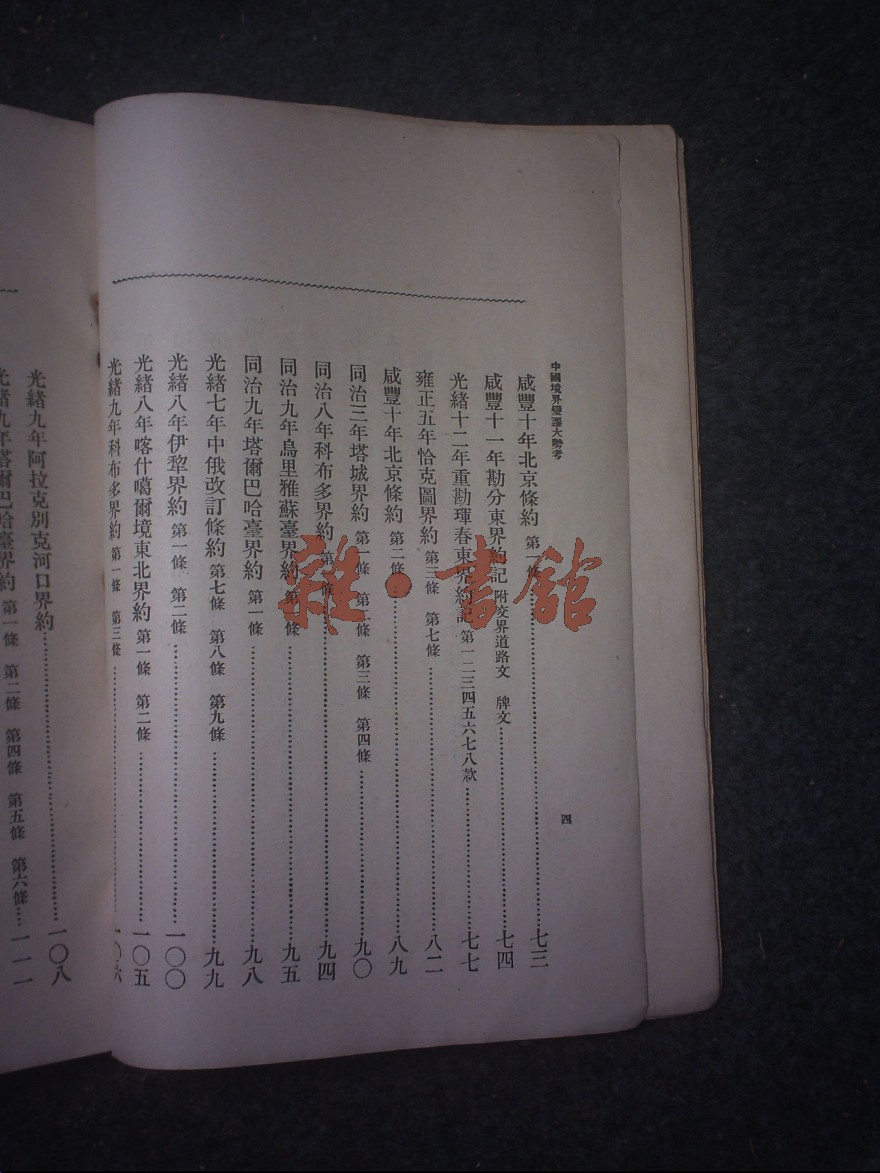 中國境界變遷大勢考
四
咸豐十年北京條約 第一條……七三
咸豐十一年勘分東界約記 附交界道路文 牌文……七四
光緒十二年重勘琿春東界約記 第一二三四五六七八款……七七
雍正五年恰克圖界約 第三條 第七條……八二
咸豐十年北京條約 第二條……八九
同治三年塔城界約 第一條 第二條 第三條 第四條……九〇
同治八年科布多界約 第一條……九四
同治九年烏里雅蘇臺界約 第一條……九五
同治九年塔爾巴哈臺界約 第一條……九八
光緒七年中俄改訂條約 第七條 第八條 第九條……九九
光緒八年伊犂界約 第一條 第二條……一〇〇
光緒八年喀什噶爾境東北界約 第一條 第二條……一〇五
光緒九年科布多界約 第一條 第三條……一〇六
光緒九年阿拉克別克河口界約……一〇八
光緒九年塔爾巴哈臺界約 第一條 第二條 第四條 第五條 第六條……一一一
雜·書館